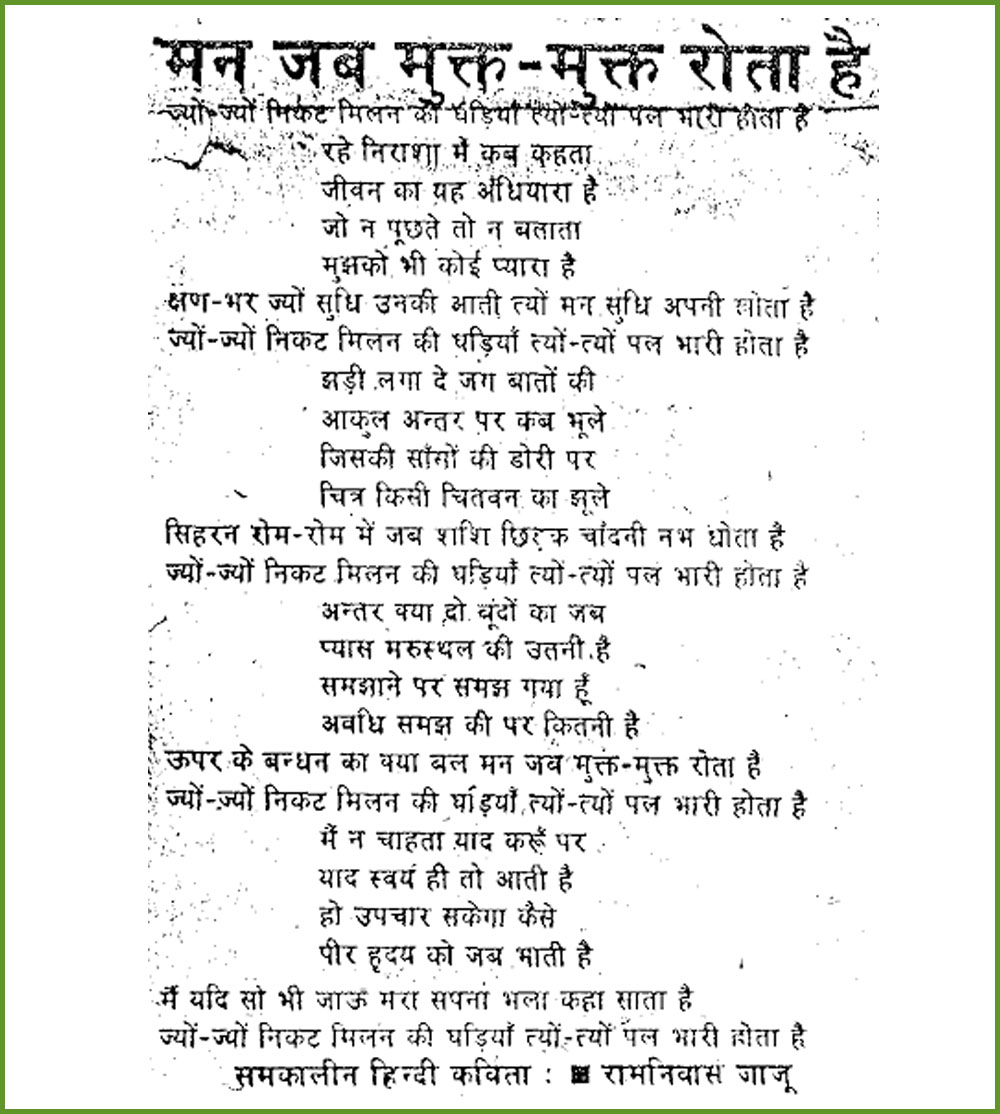 मन जब मुक्त-मुक्त रोता है
ज्यों-ज्यों निकट मिलन की घड़ियाँ त्यों-त्यों पल भारी होता है
रहे निराशा में कब कहता
जीवन का यह अंधियारा है
जो न पूछते तो न बताता
मुझको भी कोई प्यारा है
क्षण-भर ज्यों सुधि उनकी आती त्यों मन सुधि अपनी खोता है
ज्यों-ज्यों निकट मिलन की घड़ियाँ त्यों-त्यों पल भारी होता है
झड़ी लगा दे जग बातों की
आकुल अन्तर पर कब भूले
जिसकी साँसों की डोरी पर
चित्र किसी चितवन का झूले
सिहरन रोम-रोम में जब शशि छिटक चांदनी नभ धोता है
ज्यों-ज्यों निकट मिलन की घड़ियाँ त्यों-त्यों पल भारी होता है
अन्तर क्या दो बूंदों का जब
प्यास मरुस्थल की उतनी है
समझाने पर समझ गया हूँ
अवधि समझ की पर कितनी है
ऊपर के बन्धन का क्या बल मन जब मुक्त-मुक्त रोता है
ज्यों-ज्यों निकट मिलन की घड़ियाँ त्यों-त्यों पल भारी होता है
मैं न चाहता याद करूँ पर
याद स्वयं ही तो आती है
हो उपचार सकेगा कैसे
पीर हृदय को जब भाती है
मैं यदि सो भी जाऊ मरा सपना भला कहा साता है
ज्यों-ज्यों निकट मिलन की घड़ियाँ त्यों-त्यों पल भारी होता है
समकालीन हिन्दी कविता : रामनिवास जाजू